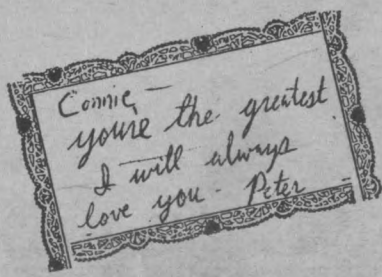 Connie,—
you're the greatest
I will always
love you - Peter